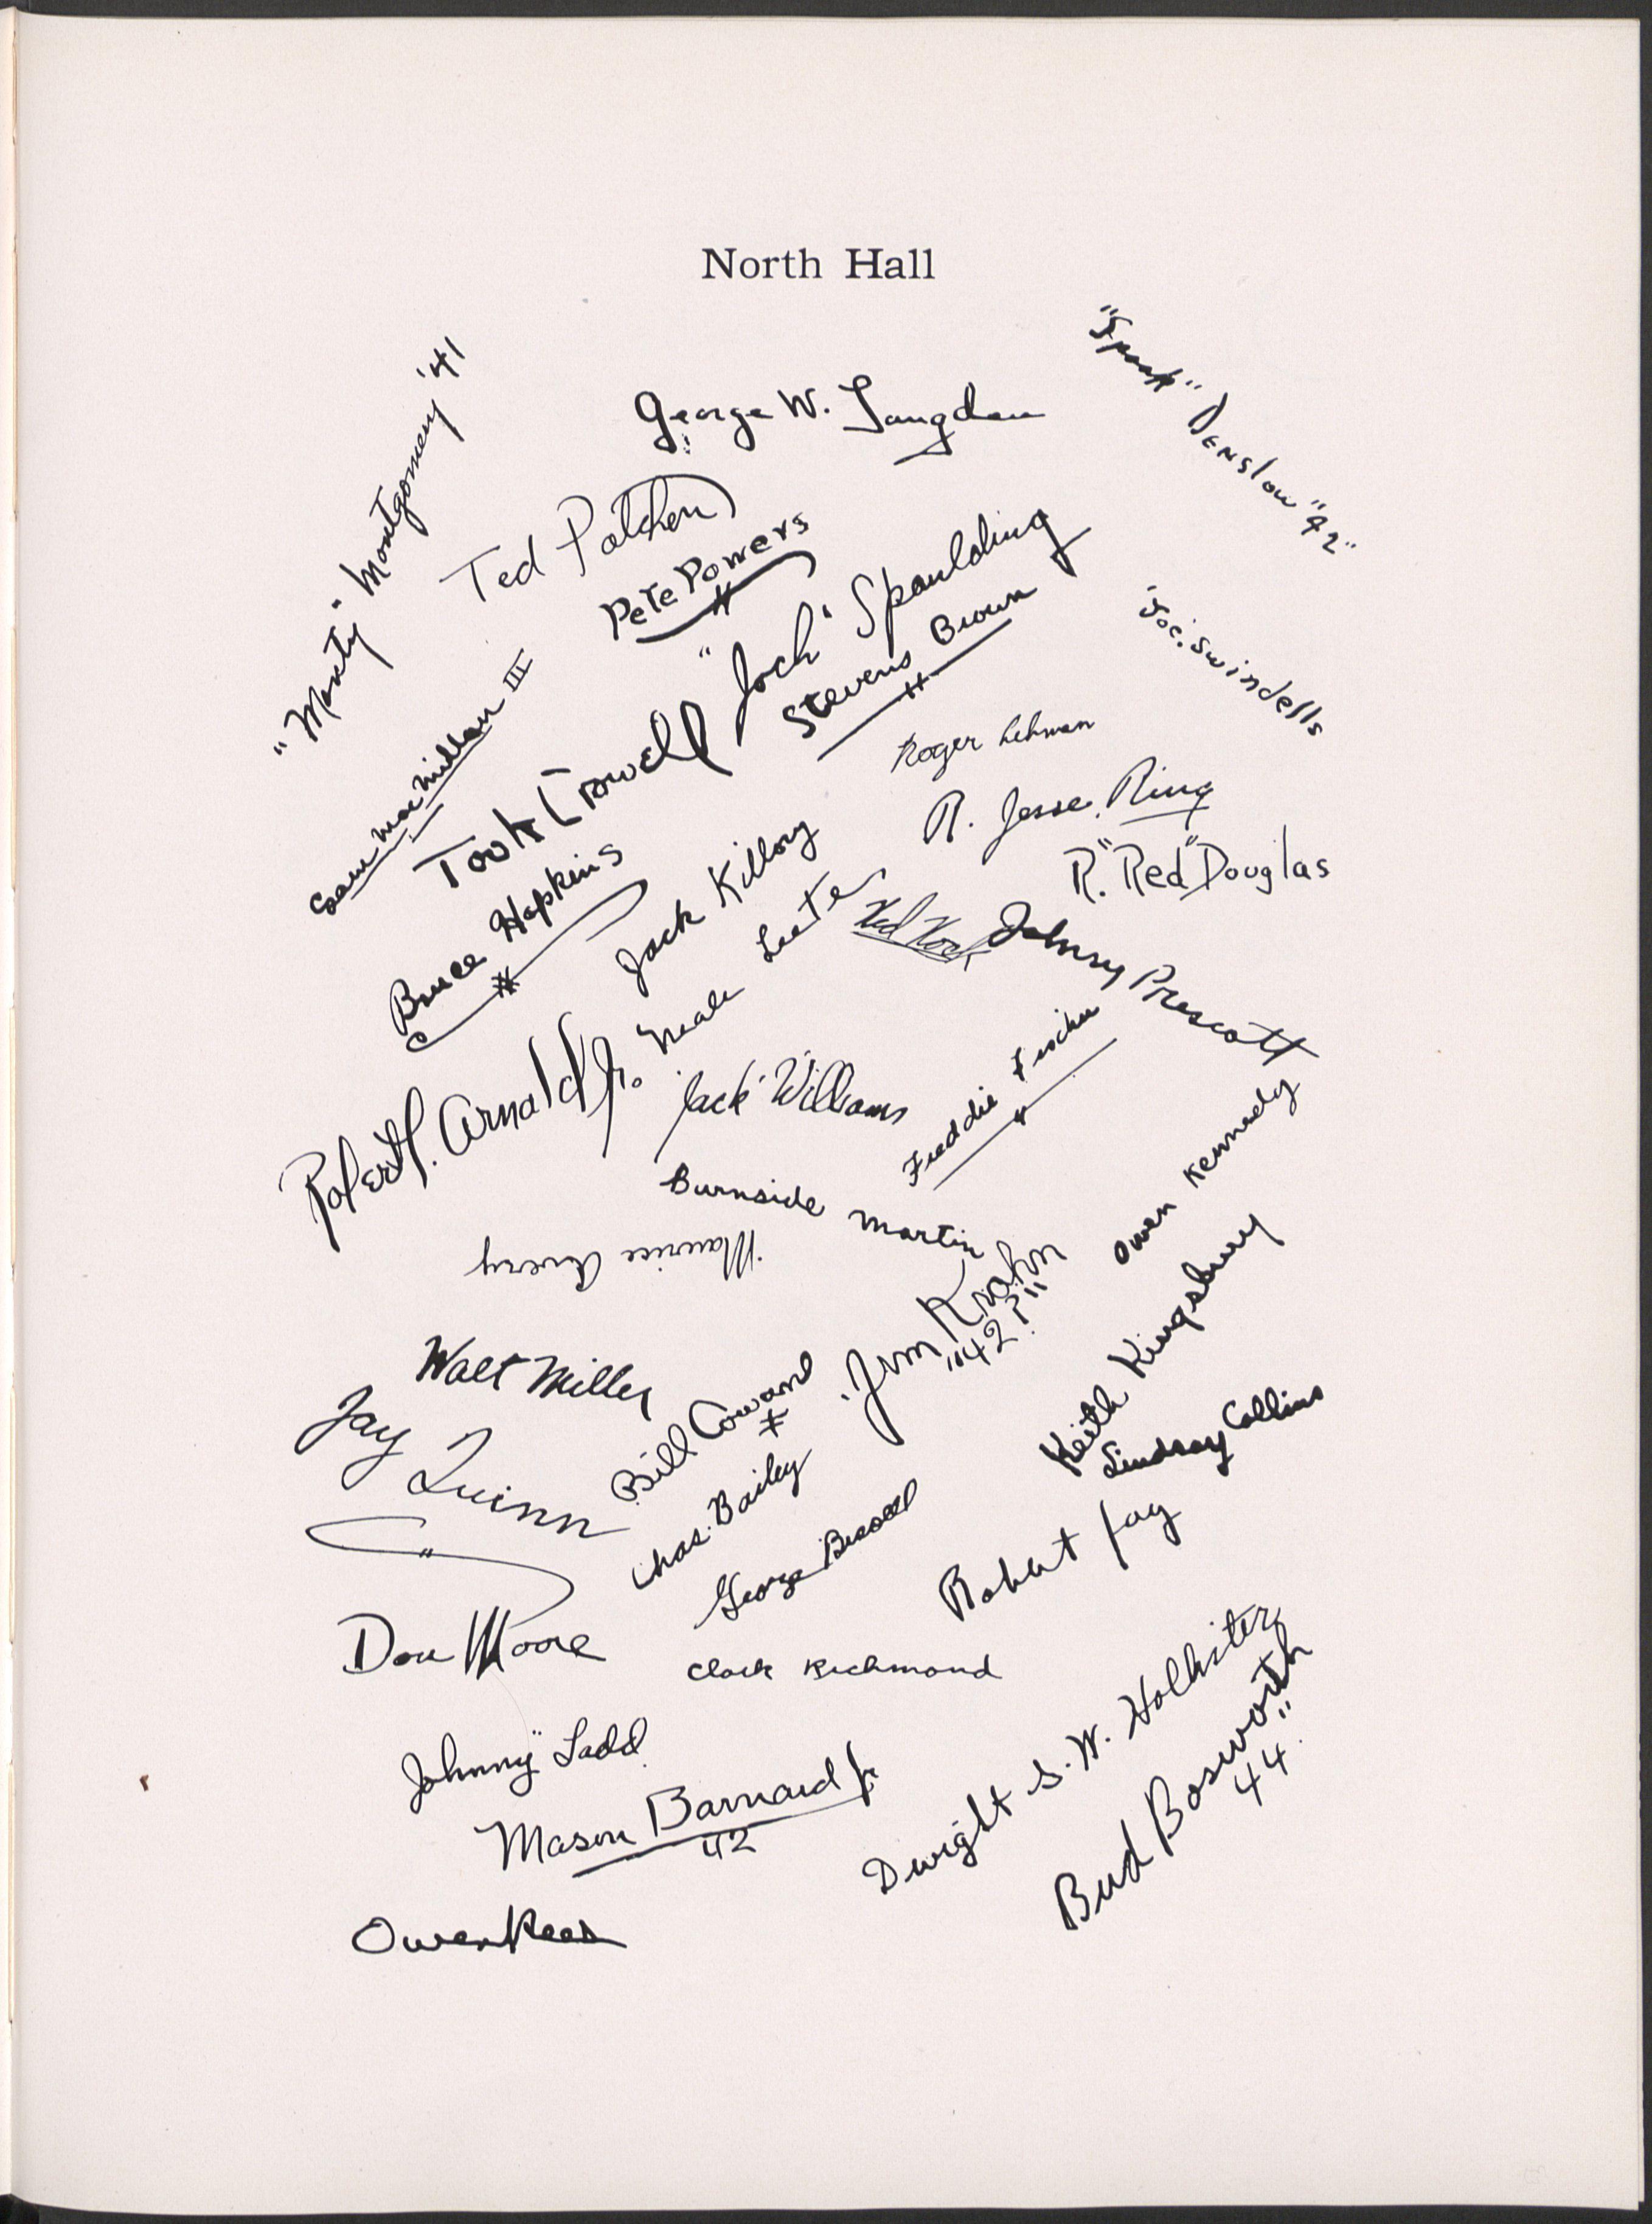 North Hall
"Monty" Montgomery '41
George W. Langdon
Denslow "42"
Ted Patchen
Pete Powers
"Jock" Spaulding
Stevens Brown
"Joe. Swindells
Sam MacMillan III
Took Crowell
Roger Lehman
R. Jesse Ring
R. "Red" Douglas
Bruce Hopkins
Jack Killory
Neale Leete
Johnny Prescott
Robert H. Arnold Jr.
"Jack" Williams
Freddie Fischer
Burnside Martin
Owen Kennedy
Maurice Avery
Jim Krahn
"42?"
Keith Kingsbury
Walt Miller
Bill Cowand
Lindsay Collins
Jay Quinn
Chas. Bailey
George
Robert Fay
Don Moore
Clark Richmond
Johnny Ladd
Dwight S. W. Hollister
Mason Barnard Jr
42
Bud Bosworth
"44"
Owen Rees